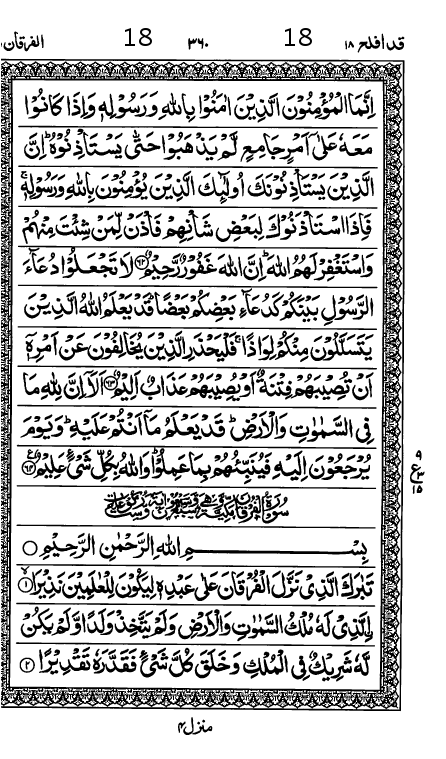 قد افلح ۱۸ 18 ۳۶۰ 18 الفرقان
اِنَّمَا الْمُؤْمِنُوْنَ الَّذِيْنَ اٰمَنُوْا بِاللّٰهِ وَرَسُوْلِهٖ وَاِذَا كَانُوْا
مَعَهٗ عَلٰٓى اَمْرٍ جَامِعٍ لَّمْ يَذْهَبُوْا حَتّٰى يَسْتَاْذِنُوْهُ ؕ اِنَّ
الَّذِيْنَ يَسْتَاْذِنُوْنَكَ اُولٰٓئِكَ الَّذِيْنَ يُؤْمِنُوْنَ بِاللّٰهِ وَرَسُوْلِهٖ ۚ
فَاِذَا اسْتَاْذَنُوْكَ لِبَعْضِ شَاْنِهِمْ فَاْذَنْ لِّمَنْ شِئْتَ مِنْهُمْ
وَاسْتَغْفِرْ لَهُمُ اللّٰهَ ؕ اِنَّ اللّٰهَ غَفُوْرٌ رَّحِيْمٌ ﴿۶۲﴾ لَا تَجْعَلُوْا دُعَآءَ
الرَّسُوْلِ بَيْنَكُمْ كَدُعَآءِ بَعْضِكُمْ بَعْضًا ؕ قَدْ يَعْلَمُ اللّٰهُ الَّذِيْنَ
يَتَسَلَّلُوْنَ مِنْكُمْ لِوَاذًا ۚ فَلْيَحْذَرِ الَّذِيْنَ يُخَالِفُوْنَ عَنْ اَمْرِهٖٓ
اَنْ تُصِيْبَهُمْ فِتْنَةٌ اَوْ يُصِيْبَهُمْ عَذَابٌ اَلِيْمٌ ﴿۶۳﴾ اَلَآ اِنَّ لِلّٰهِ مَا
فِى السَّمٰوٰتِ وَالْاَرْضِ ؕ قَدْ يَعْلَمُ مَآ اَنْتُمْ عَلَيْهِ ؕ وَيَوْمَ
يُرْجَعُوْنَ اِلَيْهِ فَيُنَبِّئُهُمْ بِمَا عَمِلُوْا ؕ وَاللّٰهُ بِكُلِّ شَىْءٍ عَلِيْمٌ ﴿۶۴﴾
۹
ع
۳
۱۵
سُوْرَةُ الْفُرْقَانِ مَكِّيَّةٌ
بِسْمِ اللّٰهِ الرَّحْمٰنِ الرَّحِيْمِ
تَبٰرَكَ الَّذِىْ نَزَّلَ الْفُرْقَانَ عَلٰى عَبْدِهٖ لِيَكُوْنَ لِلْعٰلَمِيْنَ نَذِيْرًا ﴿۱﴾
اِۨلَّذِىْ لَهٗ مُلْكُ السَّمٰوٰتِ وَالْاَرْضِ وَلَمْ يَتَّخِذْ وَلَدًا وَّلَمْ يَكُنْ
لَّهٗ شَرِيْكٌ فِى الْمُلْكِ وَخَلَقَ كُلَّ شَىْءٍ فَقَدَّرَهٗ تَقْدِيْرًا ﴿۲﴾
منزل ۴